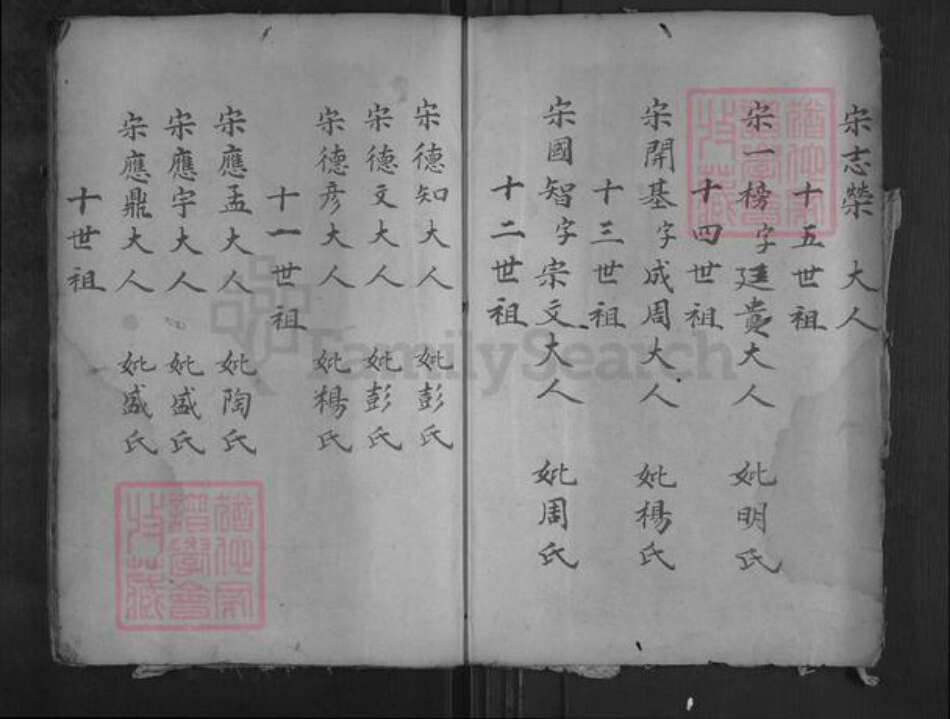 宋志榮 大人
十五世祖
宋一榜字廷貴大人 妣明氏
十四世祖
宋開基字成周大人 妣楊氏
十三世祖
宋國智字宗文大人 妣周氏
十二世祖
宋德知大人 妣彭氏
宋德文大人 妣彭氏
宋德彥大人 妣楊氏
十一世祖
宋應孟大人 妣陶氏
宋應宇大人 妣盛氏
宋應鼎大人 妣盛氏
十世祖
FamilySearch